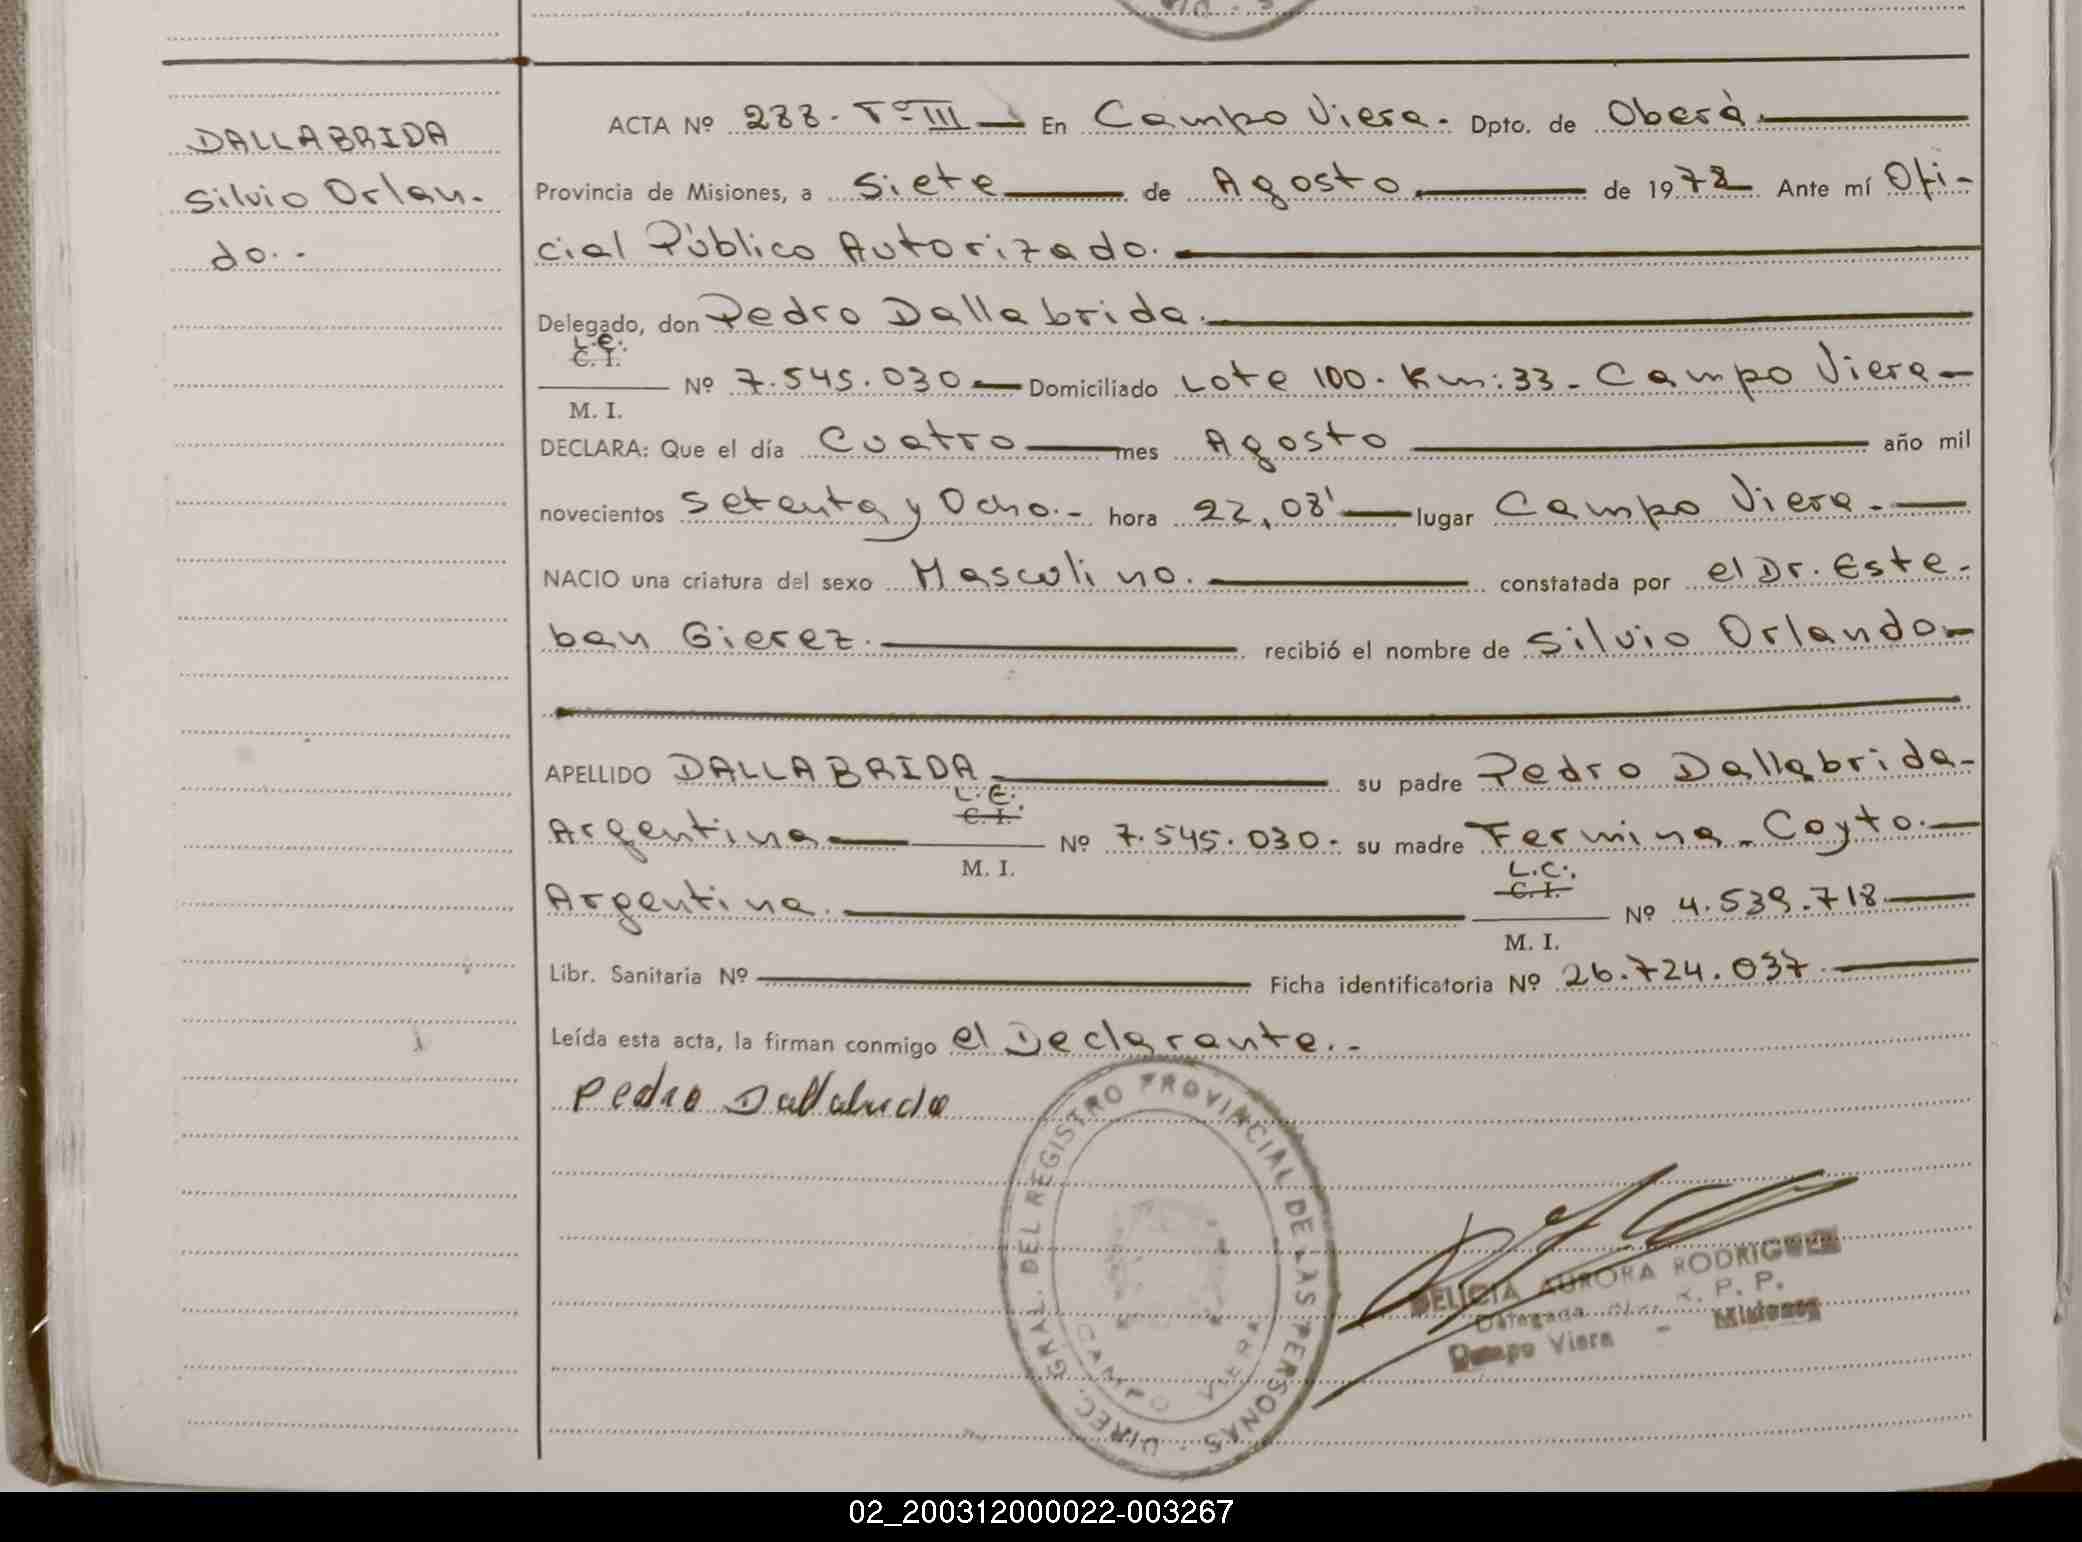 DALLABRIDA
Silvio Orlan-
do.-
ACTA Nº 288. Tº III — En Campo Viera. Dpto. de Oberá.
Provincia de Misiones, a Siete de Agosto de 1978 Ante mí Ofi-
cial Público Autorizado.
Delegado, don Pedro Dallabrida.
L.E.
C. I.
M. I.
Nº 7.545.030 — Domiciliado Lote 100. Km: 33 - Campo Viera —
DECLARA: Que el día Cuatro mes Agosto año mil
novecientos Setenta y Ocho.- hora 22,08' lugar Campo Viera.-
NACIO una criatura del sexo Masculino. constatada por el Dr. Este-
ban Gierez. recibió el nombre de Silvio Orlando —
APELLIDO DALLABRIDA su padre Pedro Dallabrida-
L.E.
C. I.
Argentina — M. I. Nº 7.545.030. su madre Fermina - Coyto.—
L.C.
C. I.
Argentina. M. I. Nº 4.539.718 —
Libr. Sanitaria Nº — Ficha identificatoria Nº 26.724.037.
Leída esta acta, la firman conmigo el Declarante.-
Pedro Dallabrida
DIREC. GRAL. DEL REGISTRO PROVINCIAL DE LAS PERSONAS
CAMPO VIERA
DELICIA AURORA RODRIGUEZ
Delegada R. P. P.
Campo Viera - Misiones
02_200312000022-003267